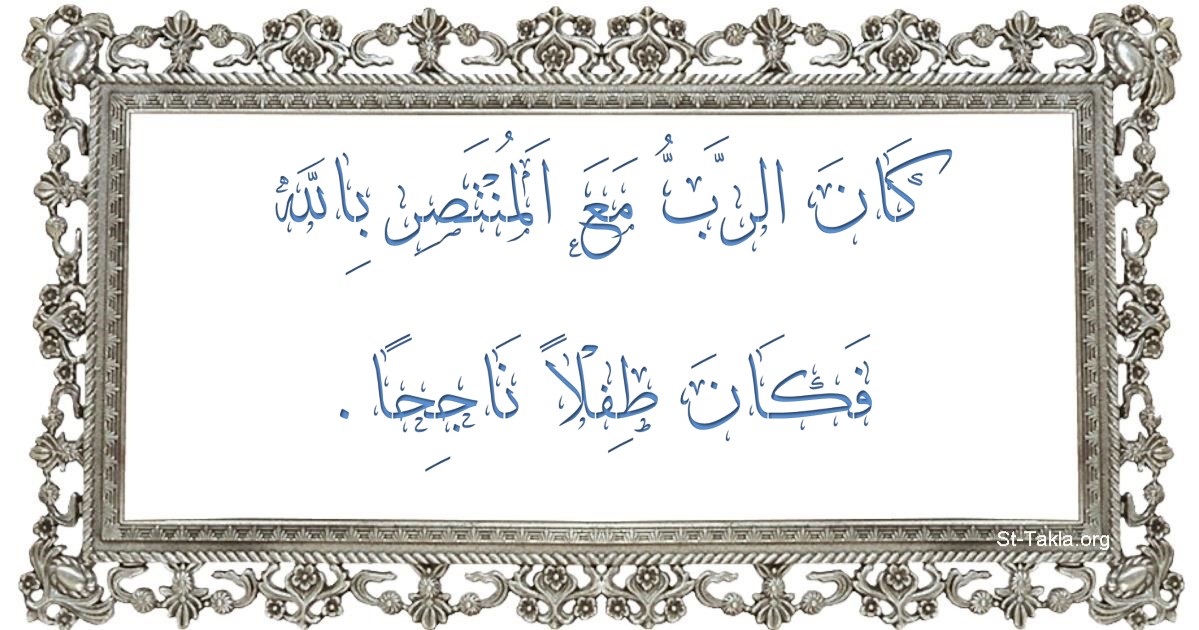 كَانَ الرَّبُّ مَعَ اَلْمُنْتَصِرِ بِاللَّهْ
فَكَانَ طِفْلاً نَاجِحًا .
St-Takla.org